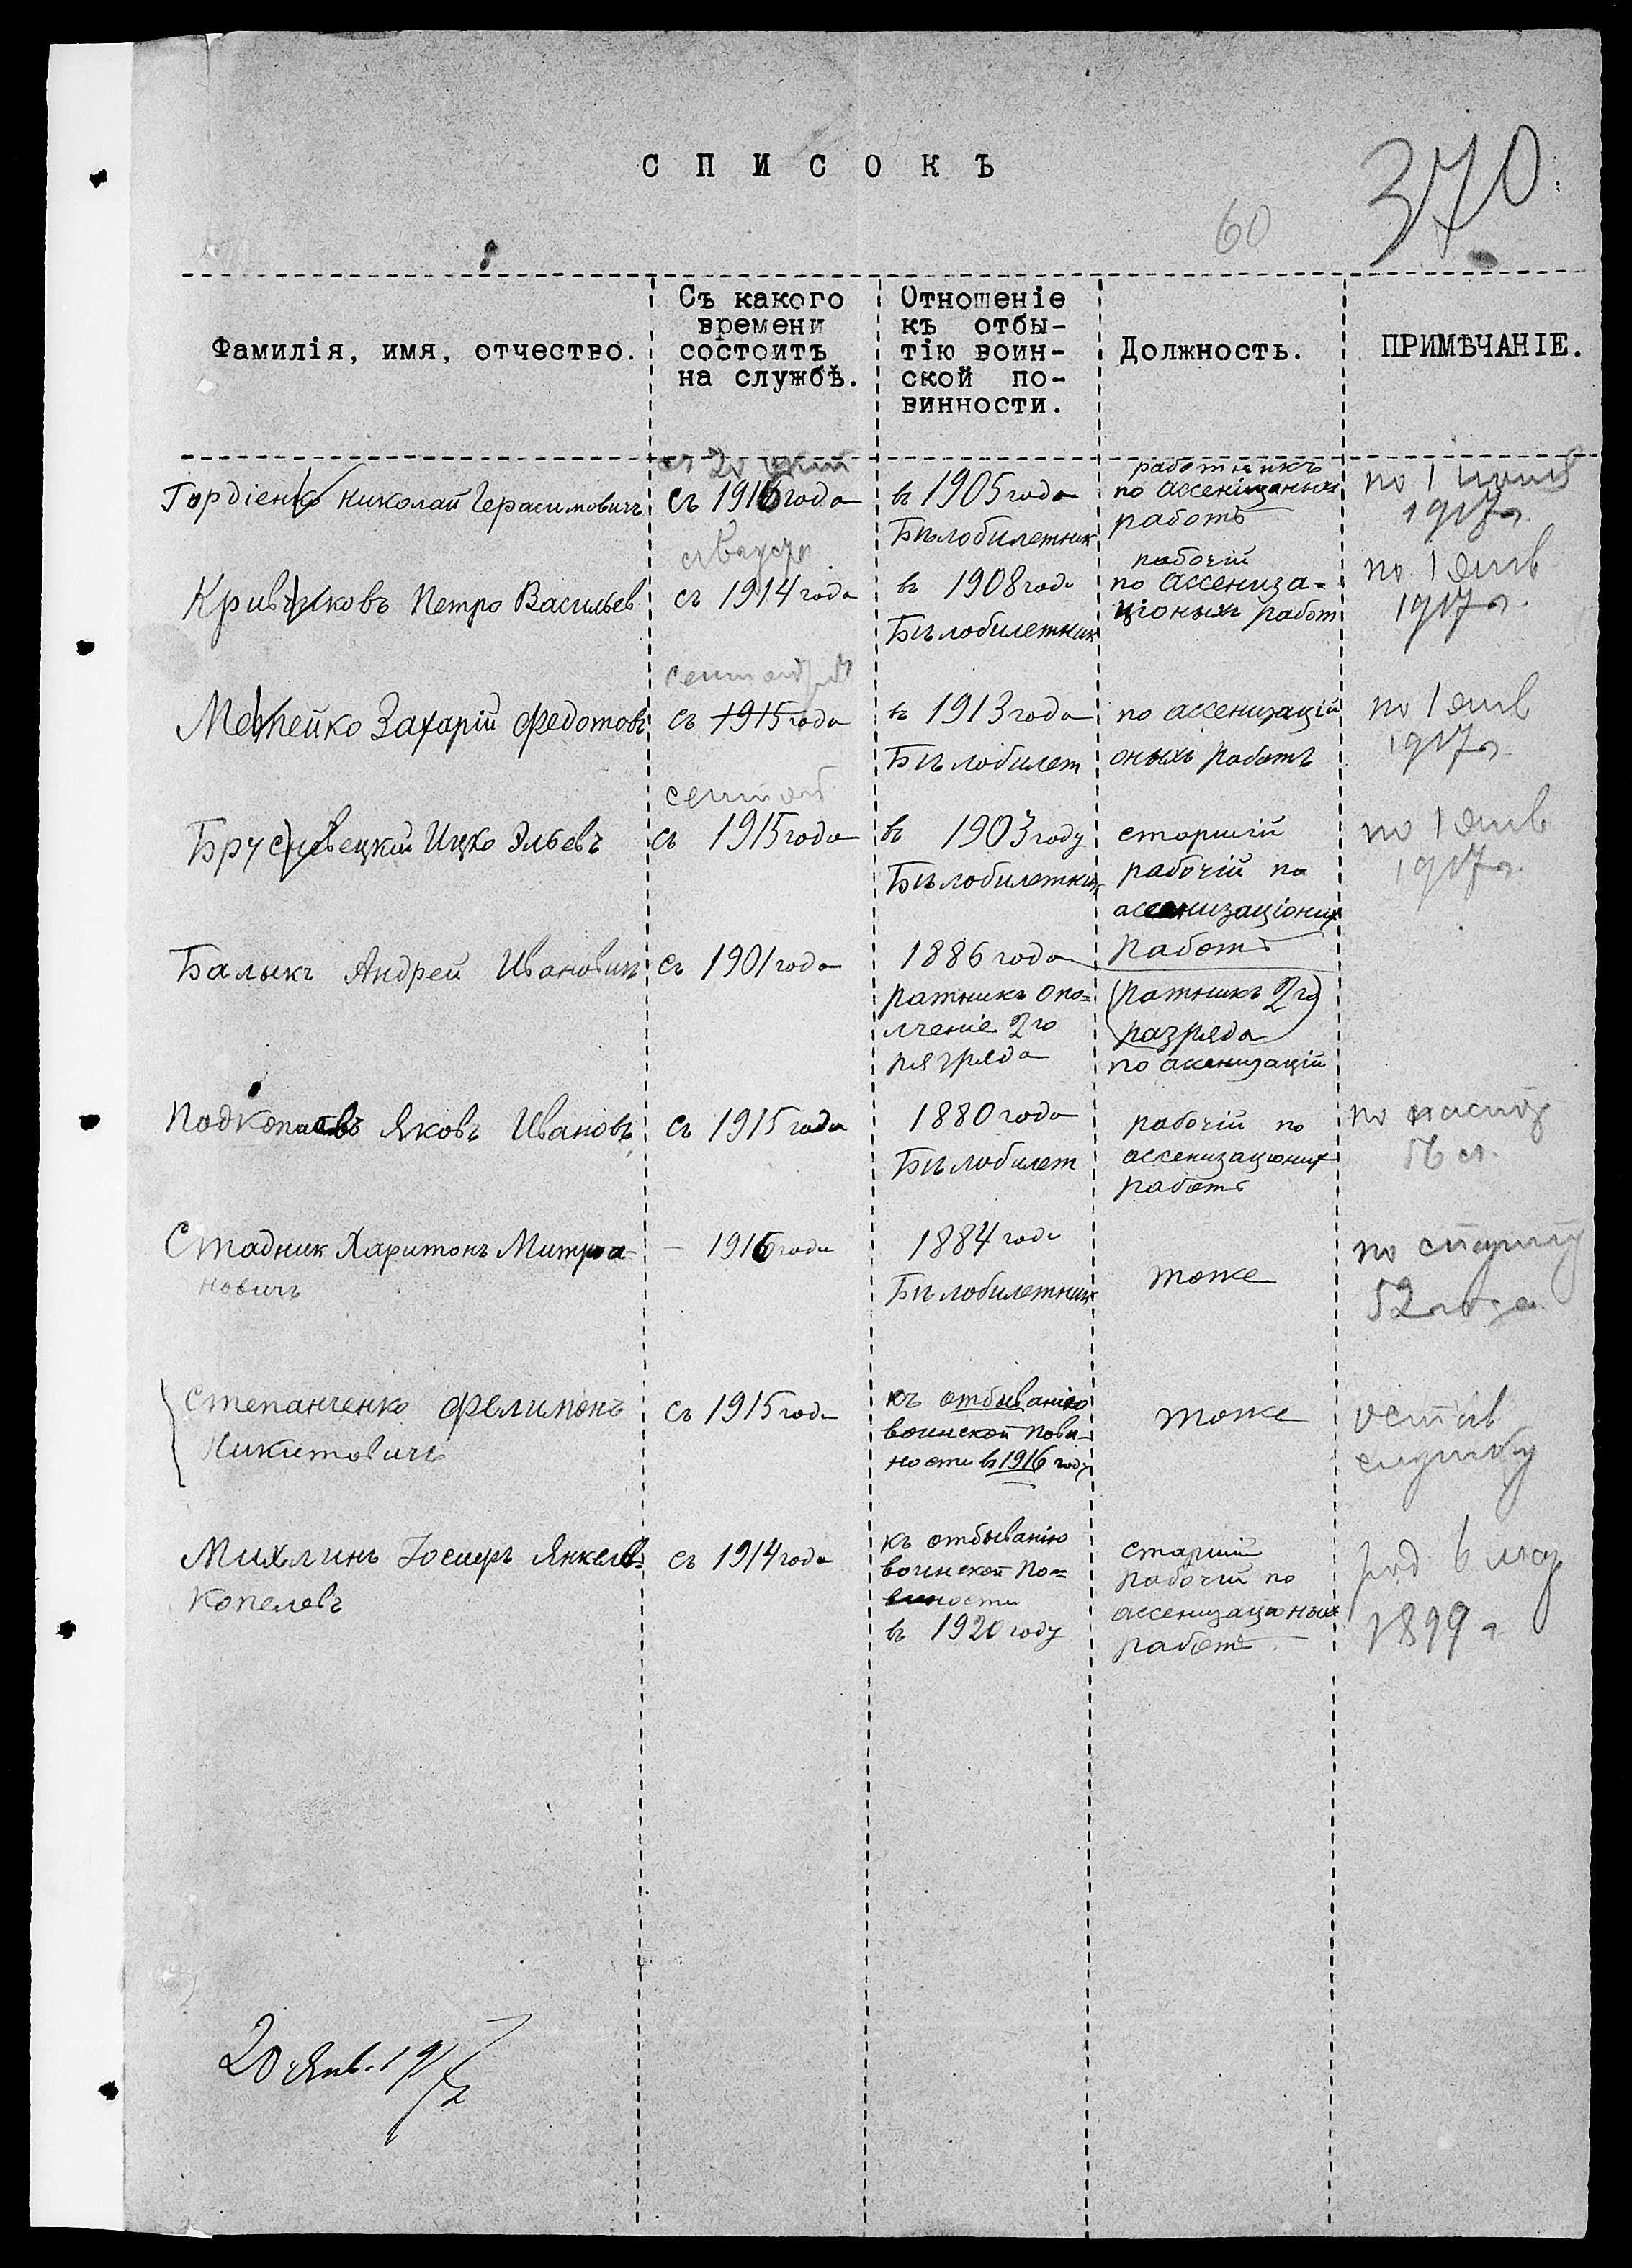 СПИСОКЪ
370
60
Фамилія, имя, отчество.
Съ какого
времени
состоитъ
на службѣ.
Отношеніе
къ отбы-
тію воин-
ской по-
винности.
Должность.
ПРИМѢЧАНІЕ.
Гордіенко Николай Герасимовичъ
съ 1916 года
въ 1905 года
Бѣлобилетник
работникъ
по ассенізаныхъ
работъ
по 1 июля
1917 г.
август
Кривчиковъ Петро Васильев
съ 1914 года
въ 1908 года
Бѣлобилетник
рабочій
по ассениза-
ціоныхъ работ
по 1 янв
1917 г.
сентября
Захарій Федотовъ
съ 1915 года
въ 1913 года
Бѣлобилет
по ассенизацій
оныхъ работъ
по 1 янв
1917 г.
сентяб
Ицко Эльевъ
съ 1915 года
въ 1903 году
Бѣлобилетник
старшій
рабочій по
ассенизаціоных
работъ
по 1 янв
1917 г.
Балыкъ Андрей Ивановичъ
съ 1901 года
1886 года
ратникъ опо=
лченіе 2го
рязряда
(ратникъ 2го)
разряда
по ассенизацій
Подкопаевъ Яковъ Ивановъ
съ 1915 года
1880 года
Бѣлобилет
рабочій по
ассенизационых
работъ
по
56 л.
Стадник Харитонъ Митроа-
новичъ
— 1916 года
1884 года
Бѣлобилетник
тоже
по
52 года
Степанченко Фелимонъ
Никитовичъ
съ 1915 года
къ отбыванію
воинской пови-
ности въ 1916 году
тоже
остав
службу
Михлинъ Іосифъ Янкелев-
Копелевъ
съ 1914 года
къ отбыванію
воинской по=
виности
въ 1920 году
старшій
рабочій по
ассенизационых
работъ.
род. 6 мар
1899 г.
20 Янв. 1917